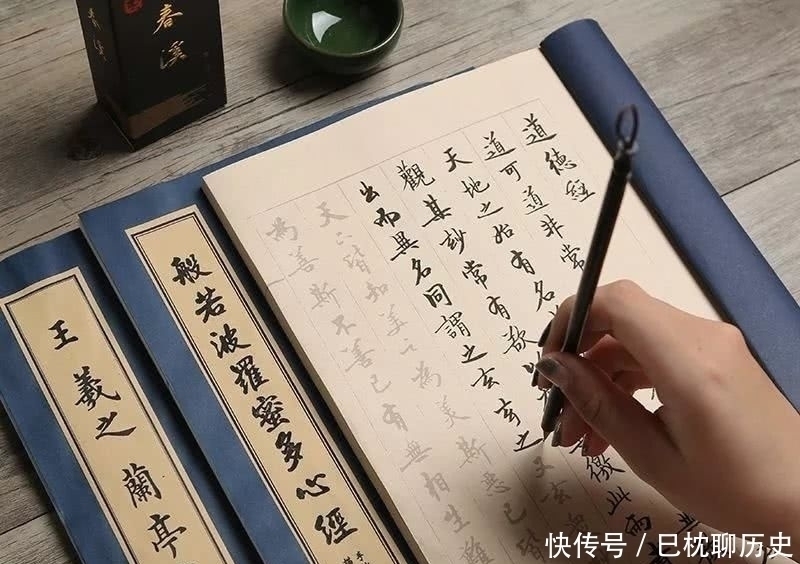 春溪
道德經
道可道非常
天地之始有名
觀其妙常有欲以
其徼此兩
出而異名同謂之玄玄之又玄
天下皆知美之為美斯惡已
為善斯不善已有無相生難
般若波羅蜜多心經
王羲之 蘭亭
快传号 / 巳枕聊历史